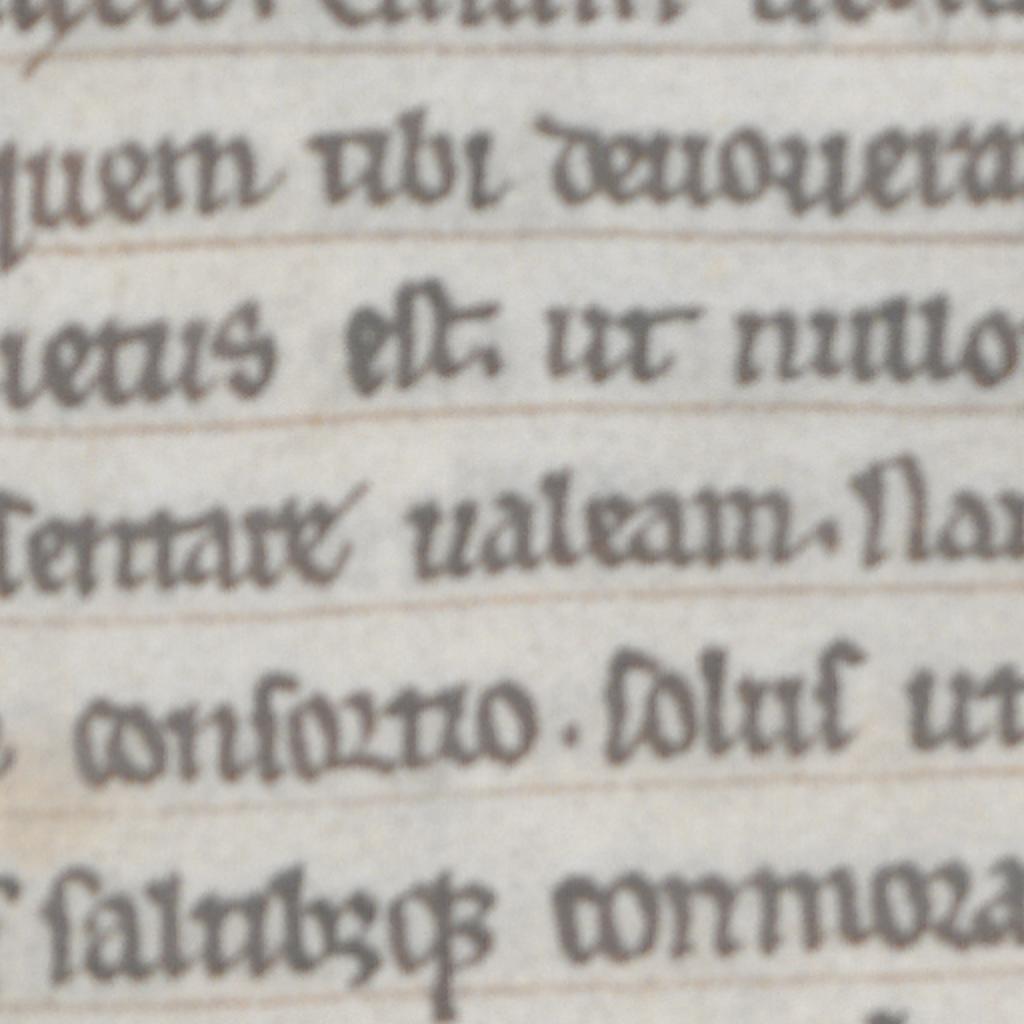 quem tibi deuouera
uetus est. ut nullo
tentare ualeam. Nam
consortio. Solus ut
saltibꝫqꝫ conmora